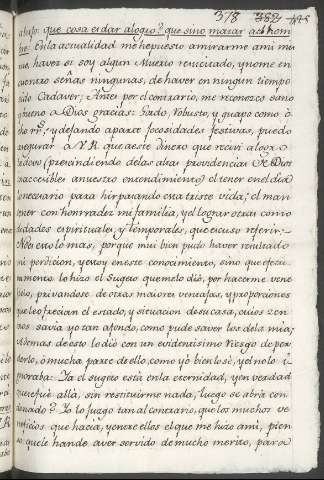 378 382
a logro: que cosa es dar a logro? que sino matar al hom
bre? En la actualidad me he puesto a mirarme a mi mis
mo, haver si soy algun Muerto resucitado, y no me en
cuentro señas ningunas, de haver en ningun tiempo
sido Cadaver; Antes por el contrario, me reconosco sano
y bueno a Dios gracias: Gordo, Robusto, y guapo como
y dexando aparte jocosidades festivas, puedo
asegurar à V.R. que a este dinero que recivi a logro
devo (prescindiendo de las altas providencias de Dios
inaccesibles a nuestro entendimiento) el tener en el dia
lo necesario para hir pasando esta triste vida; el man
tener con honrradez mi familia, y el lograr otras como
didades espirituales, y temporales, que escuso referir:
No es esto lo mas, porque mui bien pudo haver resultado
mi perdicion, y estoy en este conocimiento, sino que efecti
vamente lo hizo el Sugeto que me lo diò, por hacerme vene
ficio, privandose de otras maiores ventajas, y proporciones
que le ofrecian el estado, y situacion de su casa, cuios
savia yo tan a fondo, como pude saver los de la mia;
Ademas de esto lo diò con un evidentisimo riesgo de per
derlo, ò mucha parte de ello, como yo bien lo sè, y el no lo ig
noraba: Ya el sugeto està en la eternidad, y en verdad
que se fuè allà, sin restituirme nada, luego se abrà con
denado? Yo lo juzgo tan al contrario, que los muchos ve
neficios que hacia, y entre ellos el que me hizo a mi, pien
so que le han de aver servido de mucho merito, para